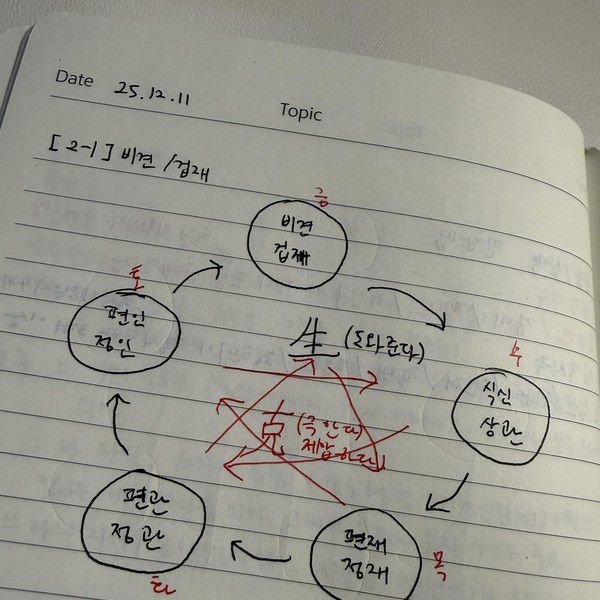 Date 25.12.11
Topic
[2-1] 비견/겁재
금
비견
겁재
토
편인
정인
生 (도와준다)
수
식신
상관
克 (극한다)
제압하다
편관
정관
화
편재
정재
목